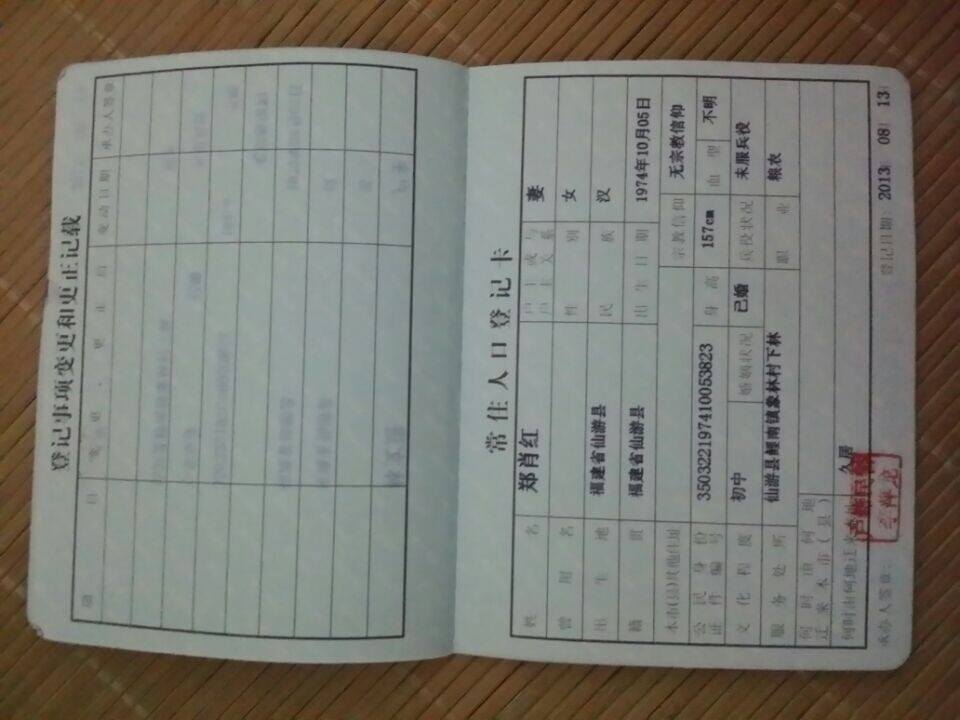 登记事项变更和更正记载
项 目
变更、更正后
变动日期
承办人签章
常住人口登记卡
姓名 郑肖红 户主或与户主关系 妻
曾用名 性别 女
出生地 福建省仙游县 民族 汉
籍贯 福建省仙游县 出生日期 1974年10月05日
本市(县)其他住址 宗教信仰 无宗教信仰
公民身份证件编号 350322197410053823 身高 157cm 血型 不明
文化程度 初中 婚姻状况 已婚 兵役状况 未服兵役
服务处所 仙游县鲤南镇象林村下林 职业 粮农
何时由何地迁来本市(县)
何时由何地迁来本址 久居
承办人签章: 登记日期: 2013 08 13